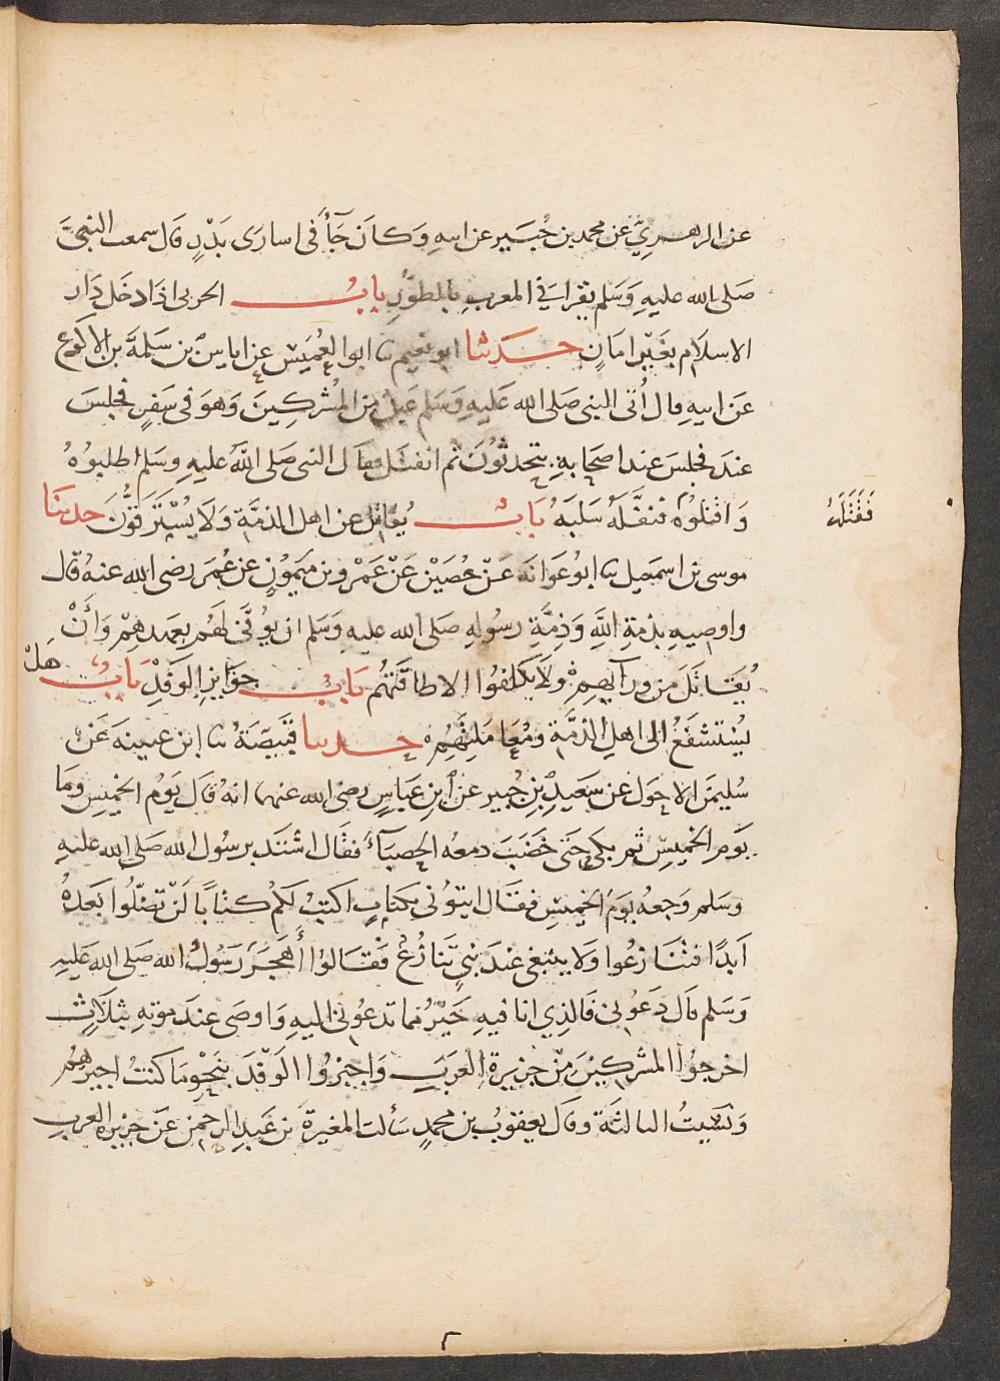 عن الزهريّ عن محمد بن جُبَير عن ابيهِ وَكانَ جَآءَ فى اسارَى بَدْرٍ قال سمعت النبىَّ
صَلى الله عليهِ وَسَلم يقرا فى المغربِ بالطورِ بابُ الحربى اذا دخَل دَار
الاسلام بغَيْر امَانٍ حدثنا ابو نعيم نا ابو العُمَيْس عن اياس بن سَلمةَ بن الاكوع
عَن ابيهِ قال أُتى النبى صَلى الله عَليهِ وَسَلم عَينٌ من المُشركينَ وَهوَ فى سَفرٍ فجلسَ
عندَ فجلسَ عند اصحابهِ يتحدثوُنَ ثم انفتَل فقال النبى صَلى اللهُ عليهِ وسَلم اطلبوُهُ
وَاقتلوُه فنفَّلَهُ سَلبَهُ بَابُ يُقاتَل عن اهل الذمَّة وَلا يُسْتَرَقُّونَ حدثنا
فَقَتَلَهُ
موسى بن اسمعيل نا ابو عَوانَة عَنْ حُصَيْن عَنْ عَمْرو بن مَيمُونٍ عن عُمَر رضى الله عنهُ قال
واوصِيهِ بذمةِ اللَّهِ وَذِمَّةِ رسُولهِ صَلى الله عليهِ وَسَلم ان يوُفَّى لَهُم بعهدهِمْ وَأَنْ
يُقاتَلَ من ورآيهِمْ وَلا يكلَّفوُا الا طاقَتَهُم بَابُ جوَايزِ الوَفْدِ بَابُ هَلْ
يُسْتشفَعُ الى اهلِ الذمَّة ومُعَامَلتِهُم حدثنا قَبيصَةُ نا ابن عيينه عَنْ
سُليمَن الاحوَل عَن سَعيدِ بن جُبير عن ابنِ عَباسٍ رضى الله عنهما انهُ قال يَوُم الخميس وما
يَوم الخميسِ ثم بكى حَتى خَضَبَ دمعه الحصبآءَ فقال اشتَد برسُول الله صَلى الله عليهِ
وسَلم وَجعهُ يوَمَ الخميسِ فقال ايتوُنى بكتابٍ اكتبْ لكُم كتابًا لَنْ تضلّوا بَعدهُ
اَبدًا فتنازعُوا وَلا ينبغى عندَ نبىٍ تَنازُعٌ فقَالوُا أَهَجَرَ رَسُولُ الله صَلى الله عَليهِ
وَسَلم قال دَعوُنى فَالذِي انا فيهِ خَيْرٌ مما تدعوُنى اليهِ وَاوصَى عندَ موتهِ بثلاثٍ
اخرجوُا المشركينَ منْ جزيرةِ العرَبِ وَاجيزوُا الوَفْدَ بنَحوِ مَا كنتُ اجيزهُم
وَنسَيتُ الثالثَة وقال يعقوبُ بن محمدٍ سَألت المغيرة بَن عَبد الرحمن عَن جزيرة العرب
٢